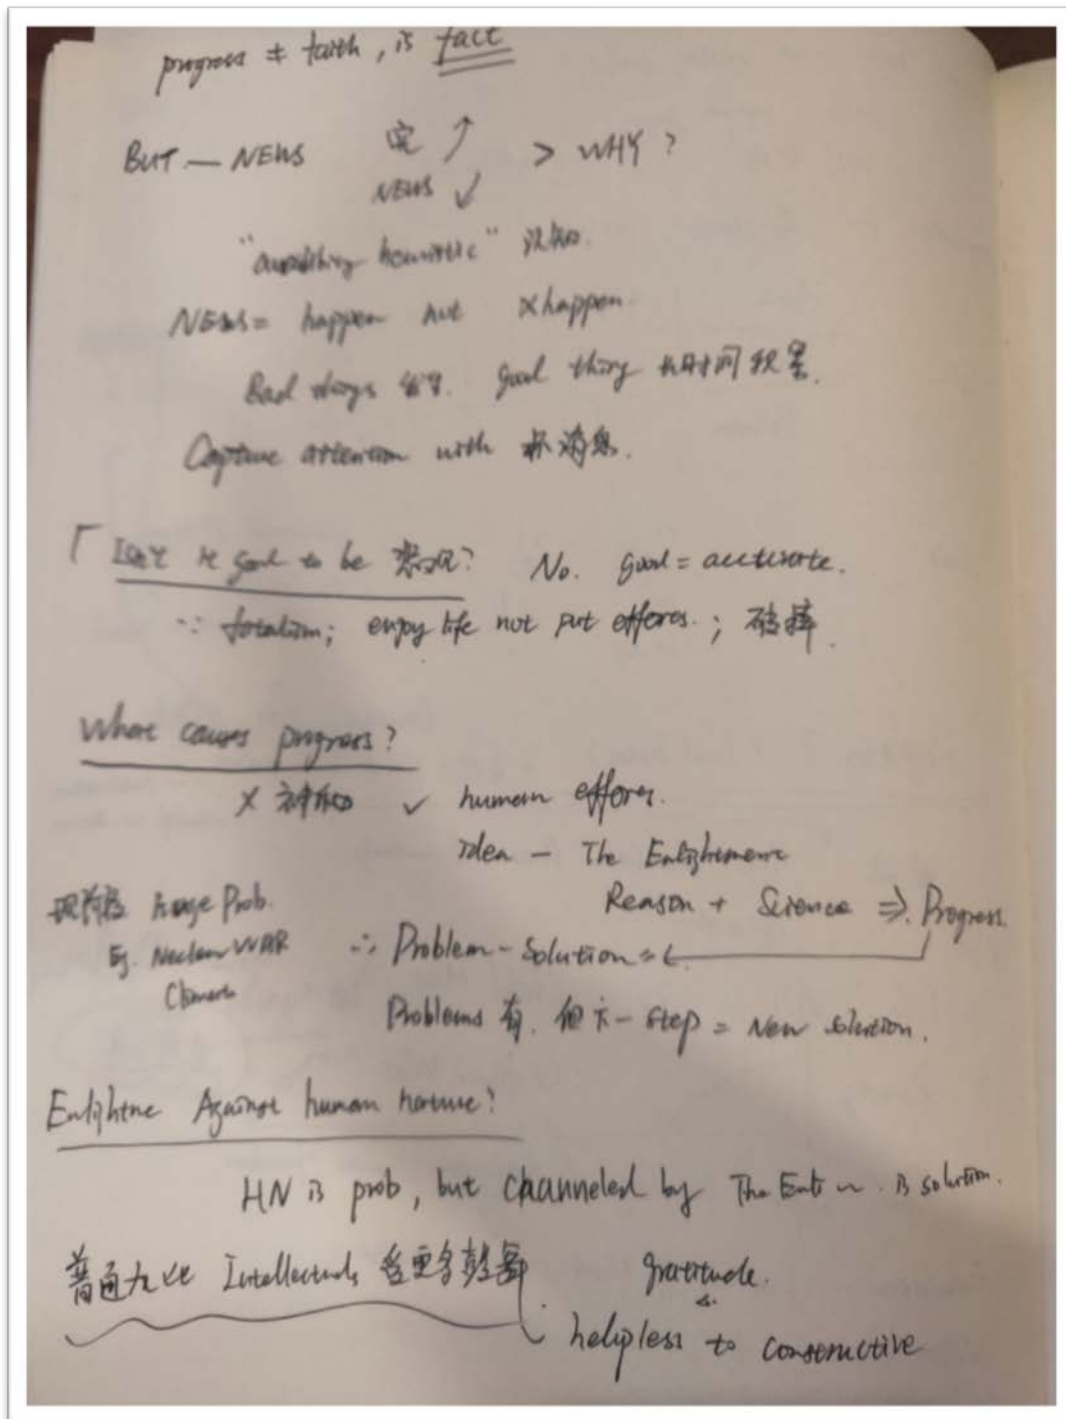 progress ≠ faith, is fact
BUT — NEWS 实 ↑ > WHY ?
NEWS ↓
" heuristic" 认知.
NEWS = happen not ×happen
Bad things good thing 长时间积累.
Capture attention with 坏消息.
「 Isn't it good to be 悲观? No. good = accurate.
∵ fatalism; enjoy life not put efforts. ;
What causes progress?
× 神秘 ✓ human efforts.
idea — The Enlightenment
Reason + Science ⇒ Progress.
huge Prob.
Eg. Nuclear WAR ∴ Problem - Solution =
Climate
Problems 有. 但下一 step = New solution.
Enlightne Against human nature?
HN is prob, but channeled by The Enli~. is solution.
普通 比 Intellectuals 受更多鼓舞 gratitude.
helpless to constructive